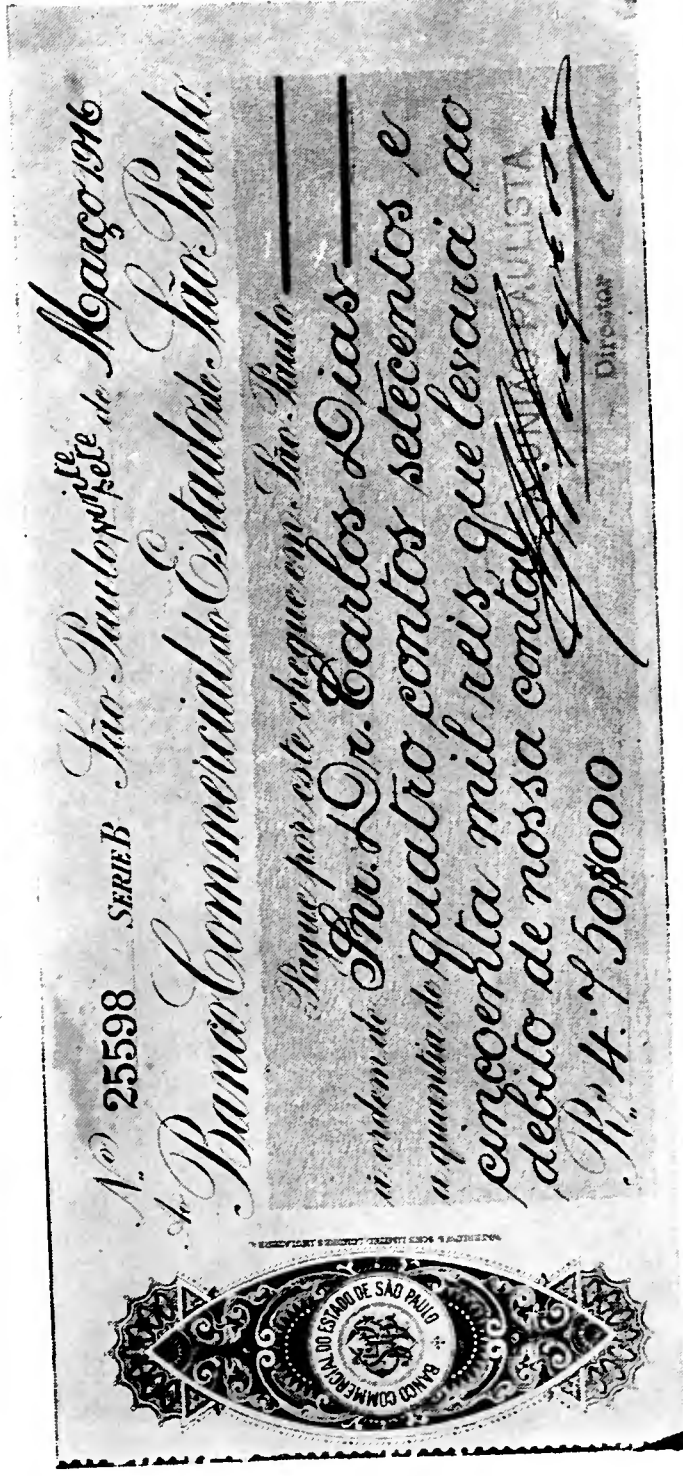 Nº 25598 SERIE B São Paulo vinte sete de Março 1916
Ao Banco Commercial do Estado de São Paulo.
Pague por este cheque em São Paulo
á ordem do Snr. Dr. Carlos Dias
a quantia de quatro contos setecentos e
cincoenta mil reis, que levará ao
debito de nossa conta
A UNIÃO PAULISTA
Rs. 4:750$000
Director
BANCO COMMERCIAL DO ESTADO DE SÃO PAULO